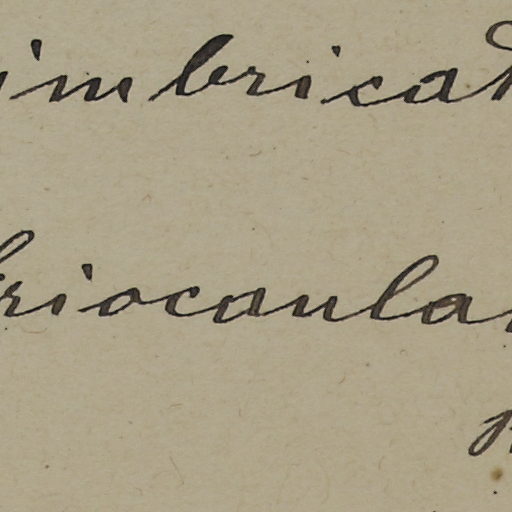 imbricat
riocaula